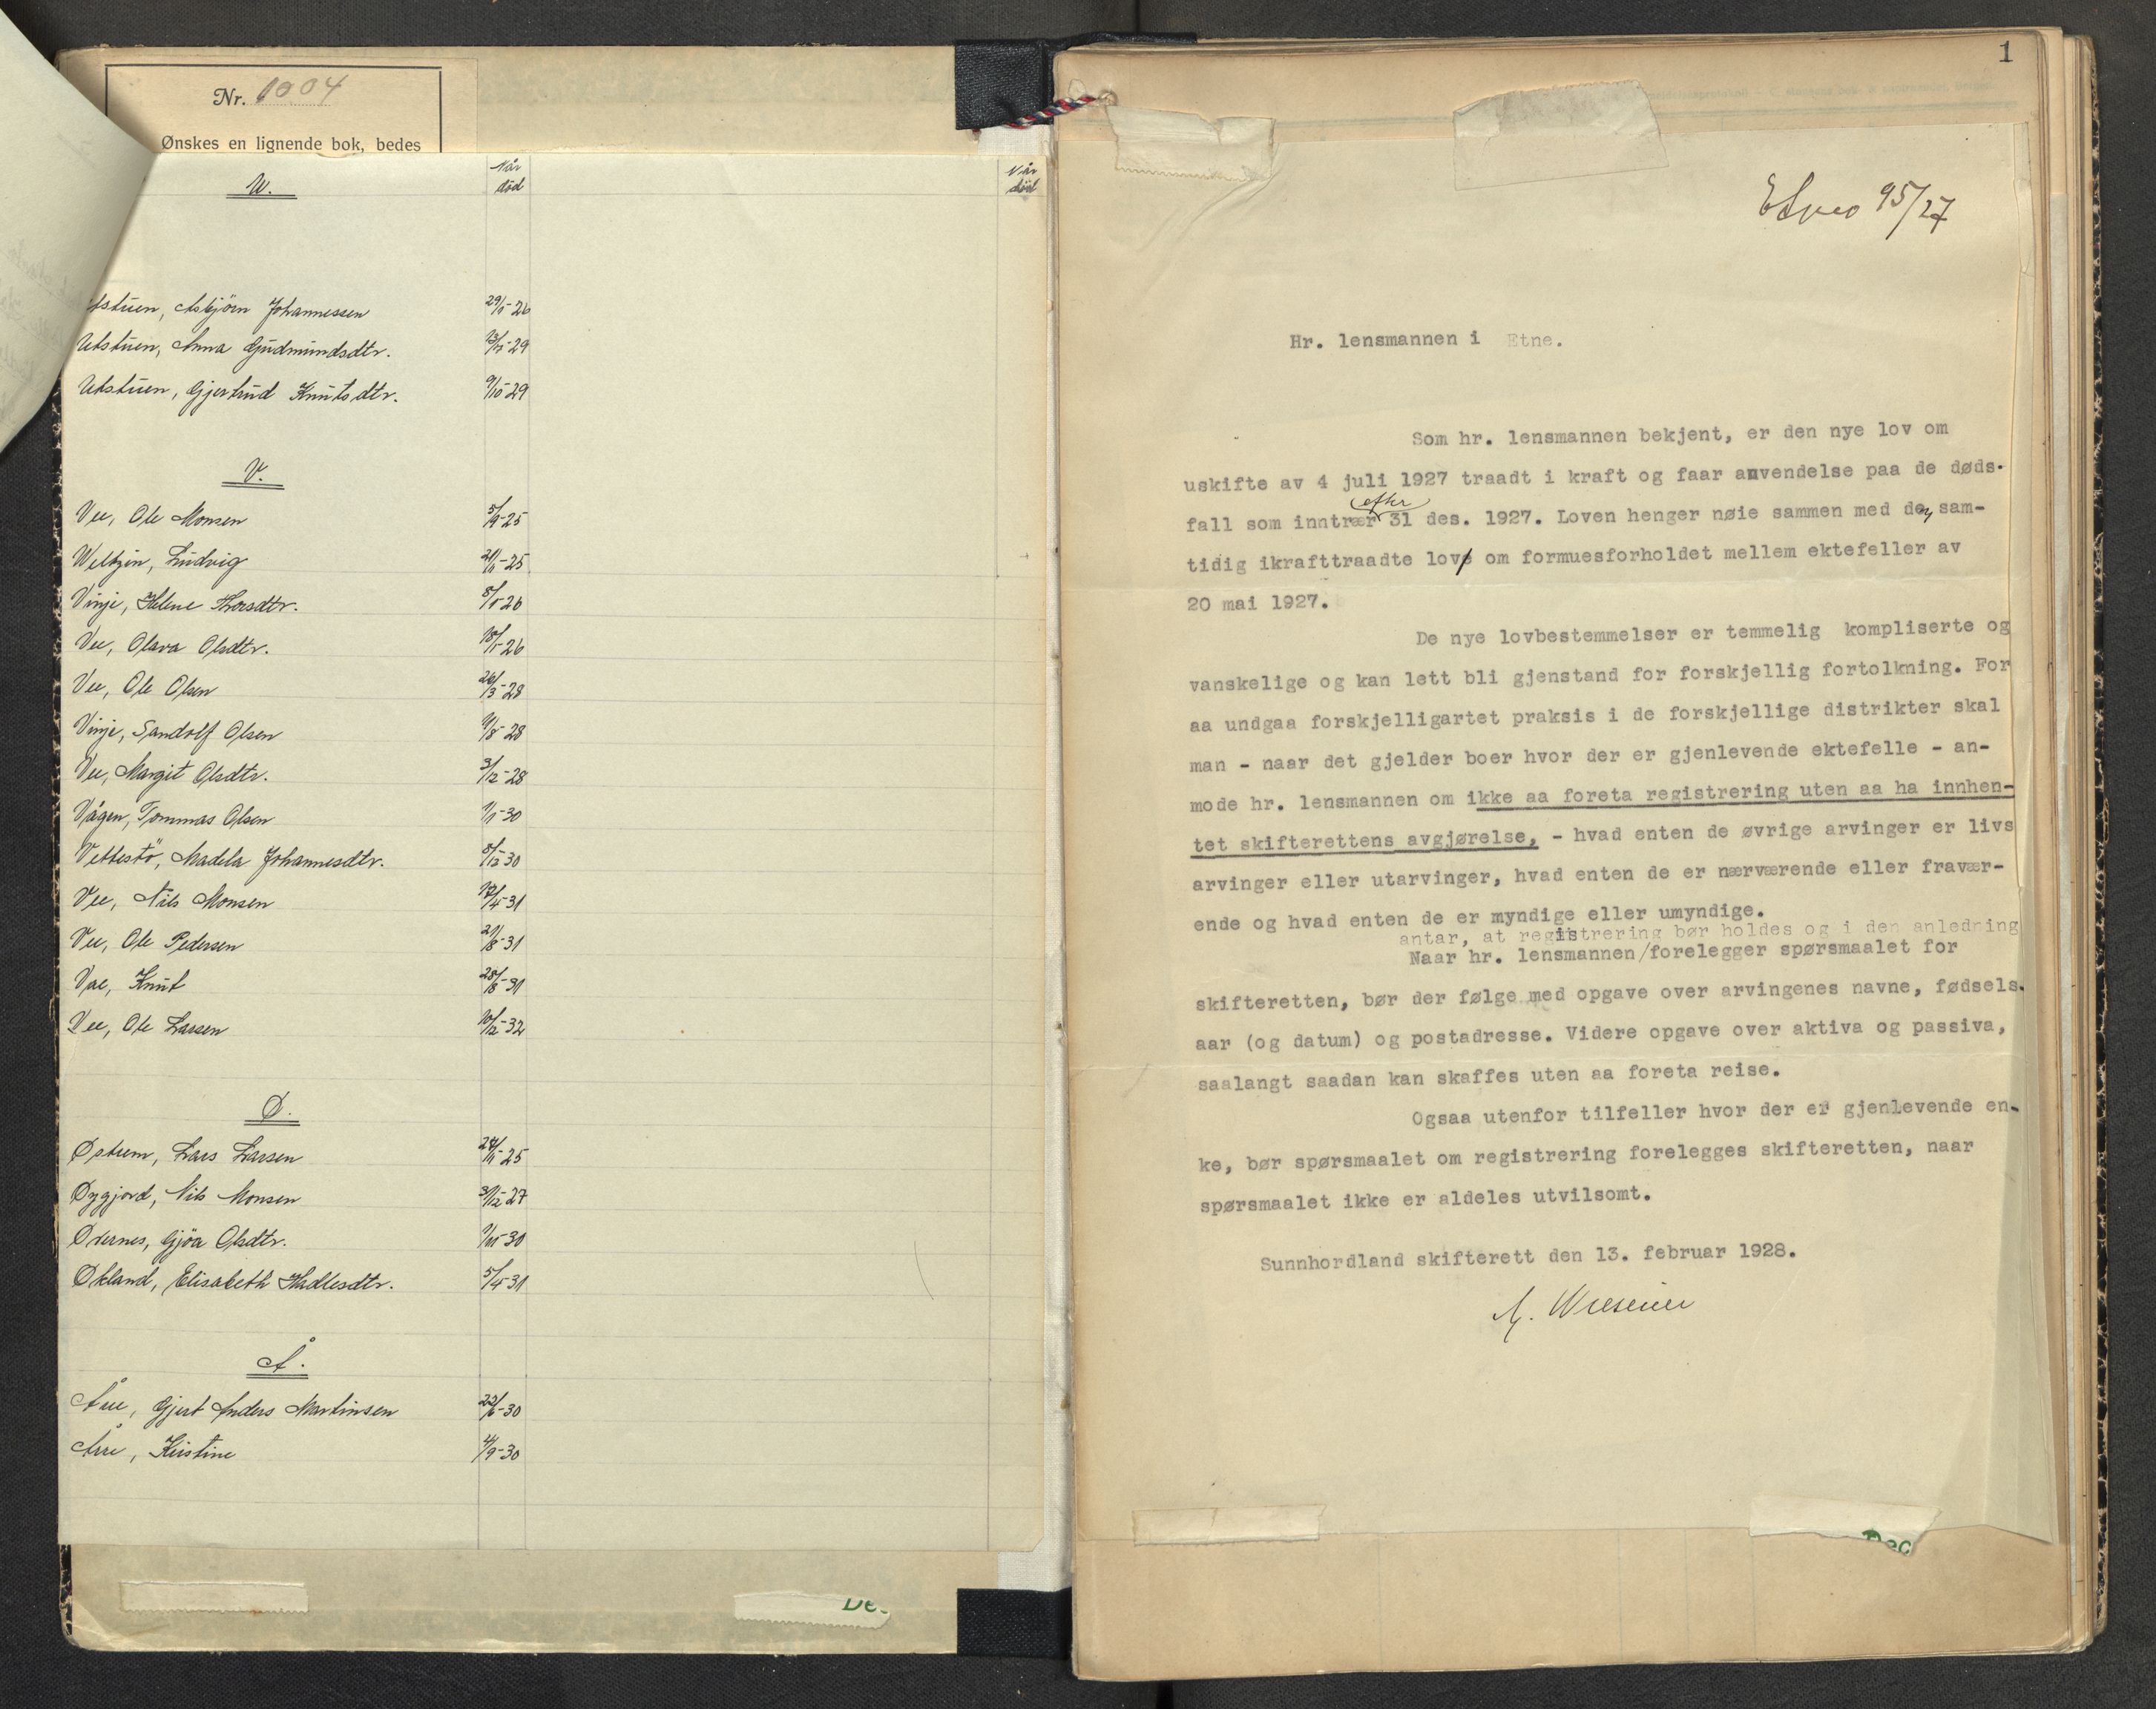 Nr. 1004
Ønskes en lignende bok, bedes
U.
Når
død
Når
død
Utstuen, Asbjörn Johannessen 29/1-26
Utstuen, Anna Gudmundsdtr. -29
Utstuen, Gjertrud Knutsdtr. 9/10-29
V.
Vee, Ole Monsen 5/9-25
Weltzin, Ludvig -25
Vinje, Helene Thorsdtr. 8/1-26
Vee, Olava Olsdtr. 18/1-26
Vee, Ole Olsen 26/3-28
Vinje, Sandolf Olsen -28
Vee, Margit Olsdtr. 3/12-28
Vågen, Tommas Olsen 1/1-30
Vettestö, Madela Johannesdtr. 8/12-30
Vee, Nils Monsen 17/4-31
Vee, Ole Pedersen 21/8-31
Vae, Knut 28/8-31
Vee, Ole Larsen 10/12-32
Ø.
Østrem, Lars Larsen 24/11-25
Øygjord, Nils Monsen 31/12-27
Øvernes, Gjöa Olsdtr. -30
Økland, Elisabeth Hadlesdtr. 5/4-31
Å.
Åre, Gjert Anders Martinsen 22/6-30
Åre, Kristine 4/9-30
De
1
Etne 95/27
Hr. lensmannen i Etne.
Som hr. lensmannen bekjent, er den nye lov om
uskifte av 4 juli 1927 traadt i kraft og faar anvendelse paa de døds-
efter
fall som inntrær 31 des. 1927. Loven henger nøie sammen med den sam-
tidig ikrafttraadte lov om formuesforholdet mellem ektefeller av
20 mai 1927.
De nye lovbestemmelser er temmelig kompliserte og
vanskelige og kan lett bli gjenstand for forskjellig fortolkning. For
aa undgaa forskjelligartet praksis i de forskjellige distrikter skal
man - naar det gjelder boer hvor der er gjenlevende ektefelle - an-
mode hr. lensmannen om ikke aa foreta registrering uten aa ha innhen-
tet skifterettens avgjørelse, - hvad enten de øvrige arvinger er livs
arvinger eller utarvinger, hvad enten de er nærværende eller fravær-
ende og hvad enten de er myndige eller umyndige.
antar, at registrering bør holdes og i den anledning
Naar hr. lensmannen/forelegger spørsmaalet for
skifteretten, bør der følge med opgave over arvingenes navne, fødsels-
aar (og datum) og postadresse. Videre opgave over aktiva og passiva,
saalangt saadan kan skaffes uten aa foreta reise.
Ogsaa utenfor tilfeller hvor der er gjenlevende en-
ke, bør spørsmaalet om registrering forelegges skifteretten, naar
spørsmaalet ikke er aldeles utvilsomt.
Sunnhordland skifterett den 13. februar 1928.
Dec